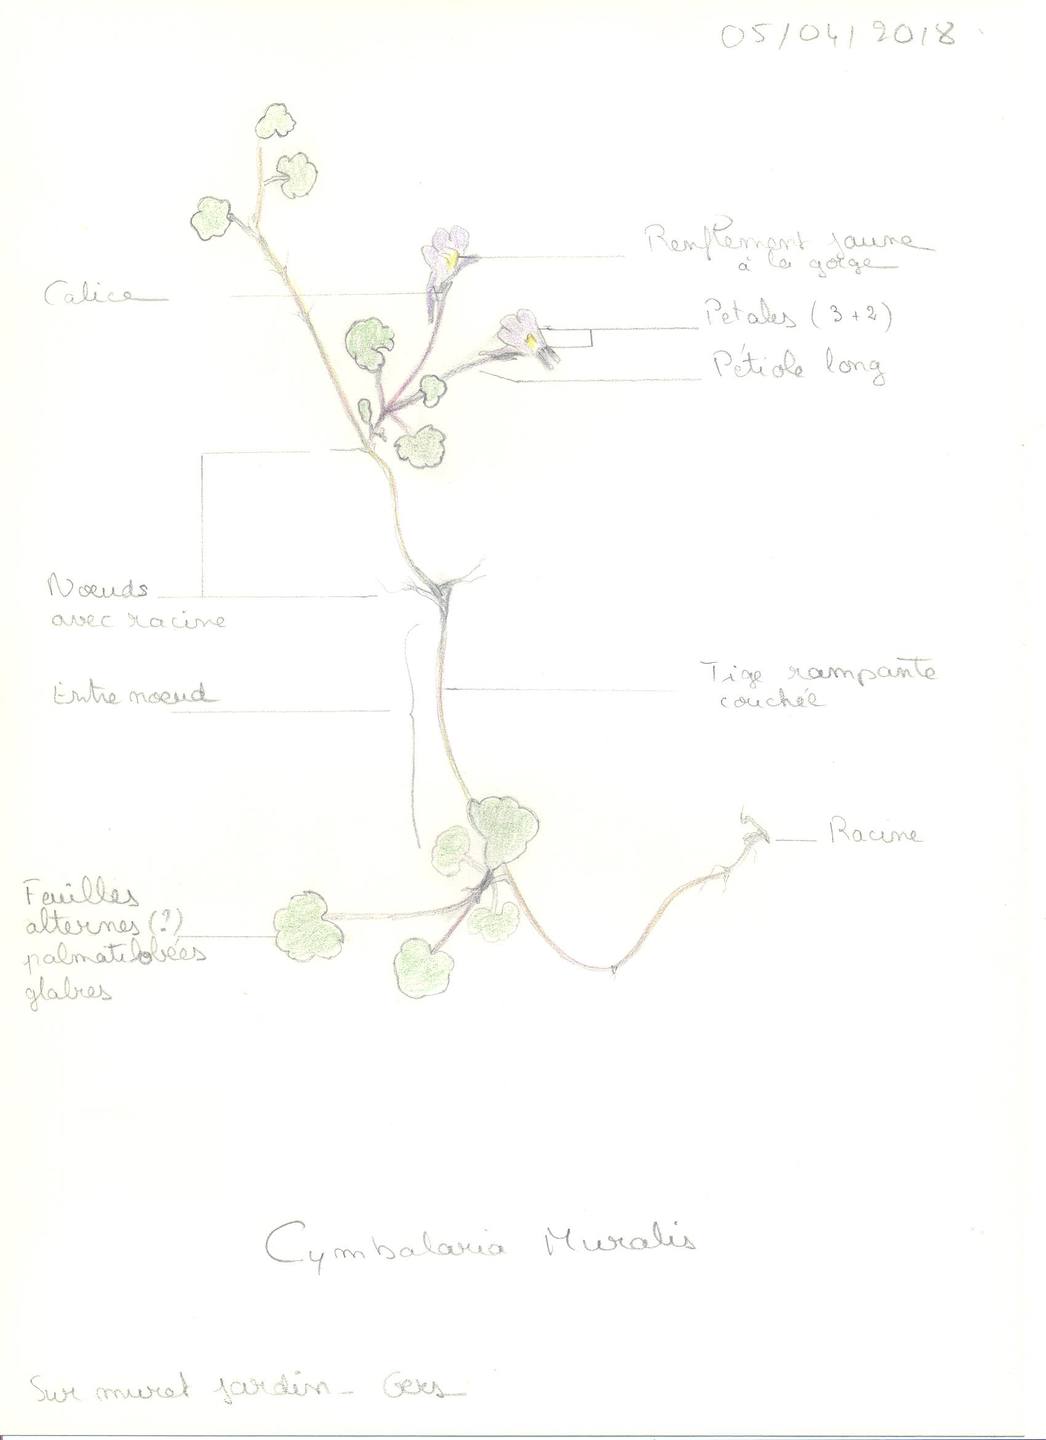 05/04/2018
Renflement jaune
à la gorge
Calice
Pétales (3+2)
Pétiole long
Nœuds
avec racine
Entre nœud
Tige rampante
couchée
Racine
Feuilles
alternes (?)
palmatilobées
glabres
Cymbalaria Muralis
Sur muret jardin - Gers